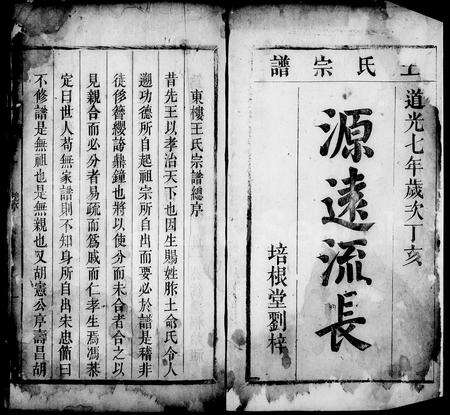 王氏宗譜
道光七年歲次丁亥
源遠流長
培根堂劉梓
東樓王氏宗譜總序
昔先王以孝治天下也因生賜姓胙土命氏令人
遡功德所自起祖宗所自出而要必於譜是稽非
徒侈簪纓誇鼎鐘也將以使分而未合者合之以
見親合而必分者易疏而爲戚而仁孝生焉馮恭
定曰世人苟無家譜則不知身所自出朱忠僃曰
不修譜是無祖也是無親也又胡憲公序壽昌胡